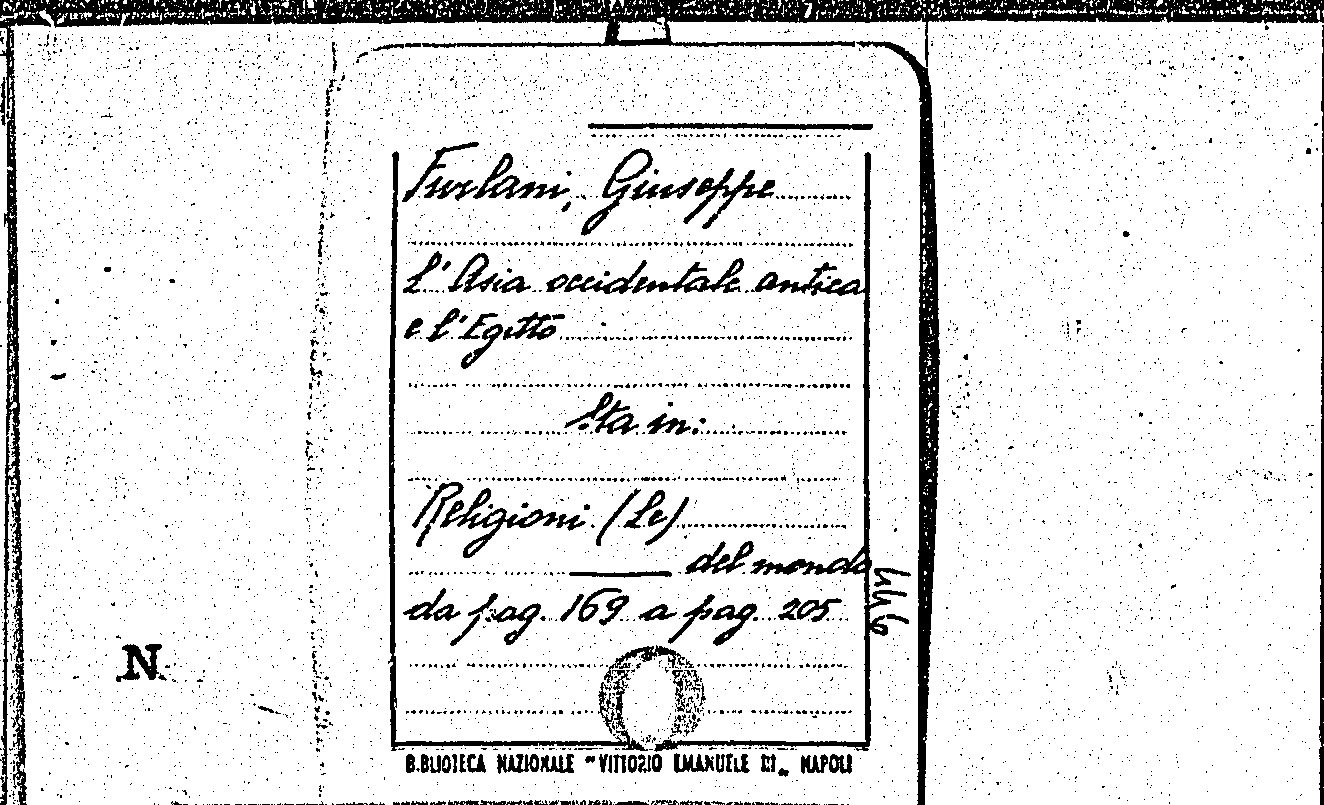 Furlani, Giuseppe
L'Asia occidentale antica
e l'Egitto
Sta in:
Religioni (Le)
del mondo
da pag. 169 a pag. 205
N
BIBLIOTECA NAZIONALE "VITTORIO EMANUELE III" NAPOLI